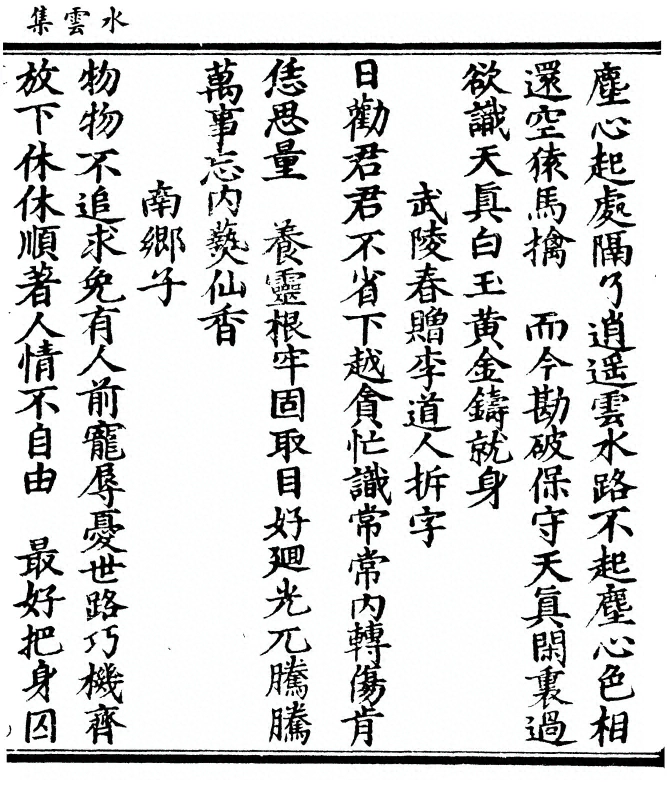 水雲集
塵心起處隔了逍遥雲水路不起塵心色相
還空猿馬擒　而今勘破保守天眞閑裏過
欲識天眞白玉黄金鑄就身
武陵春贈李道人拆字
日勸君君不省下越貪忙識常常内轉傷肯
恁思量　養靈根牢固取目好廽光兀騰騰
萬事忘内爇仙香
南鄉子
物物不追求免有人前寵辱憂世路巧機齊
放下休休順著人情不自由　最好把身囚